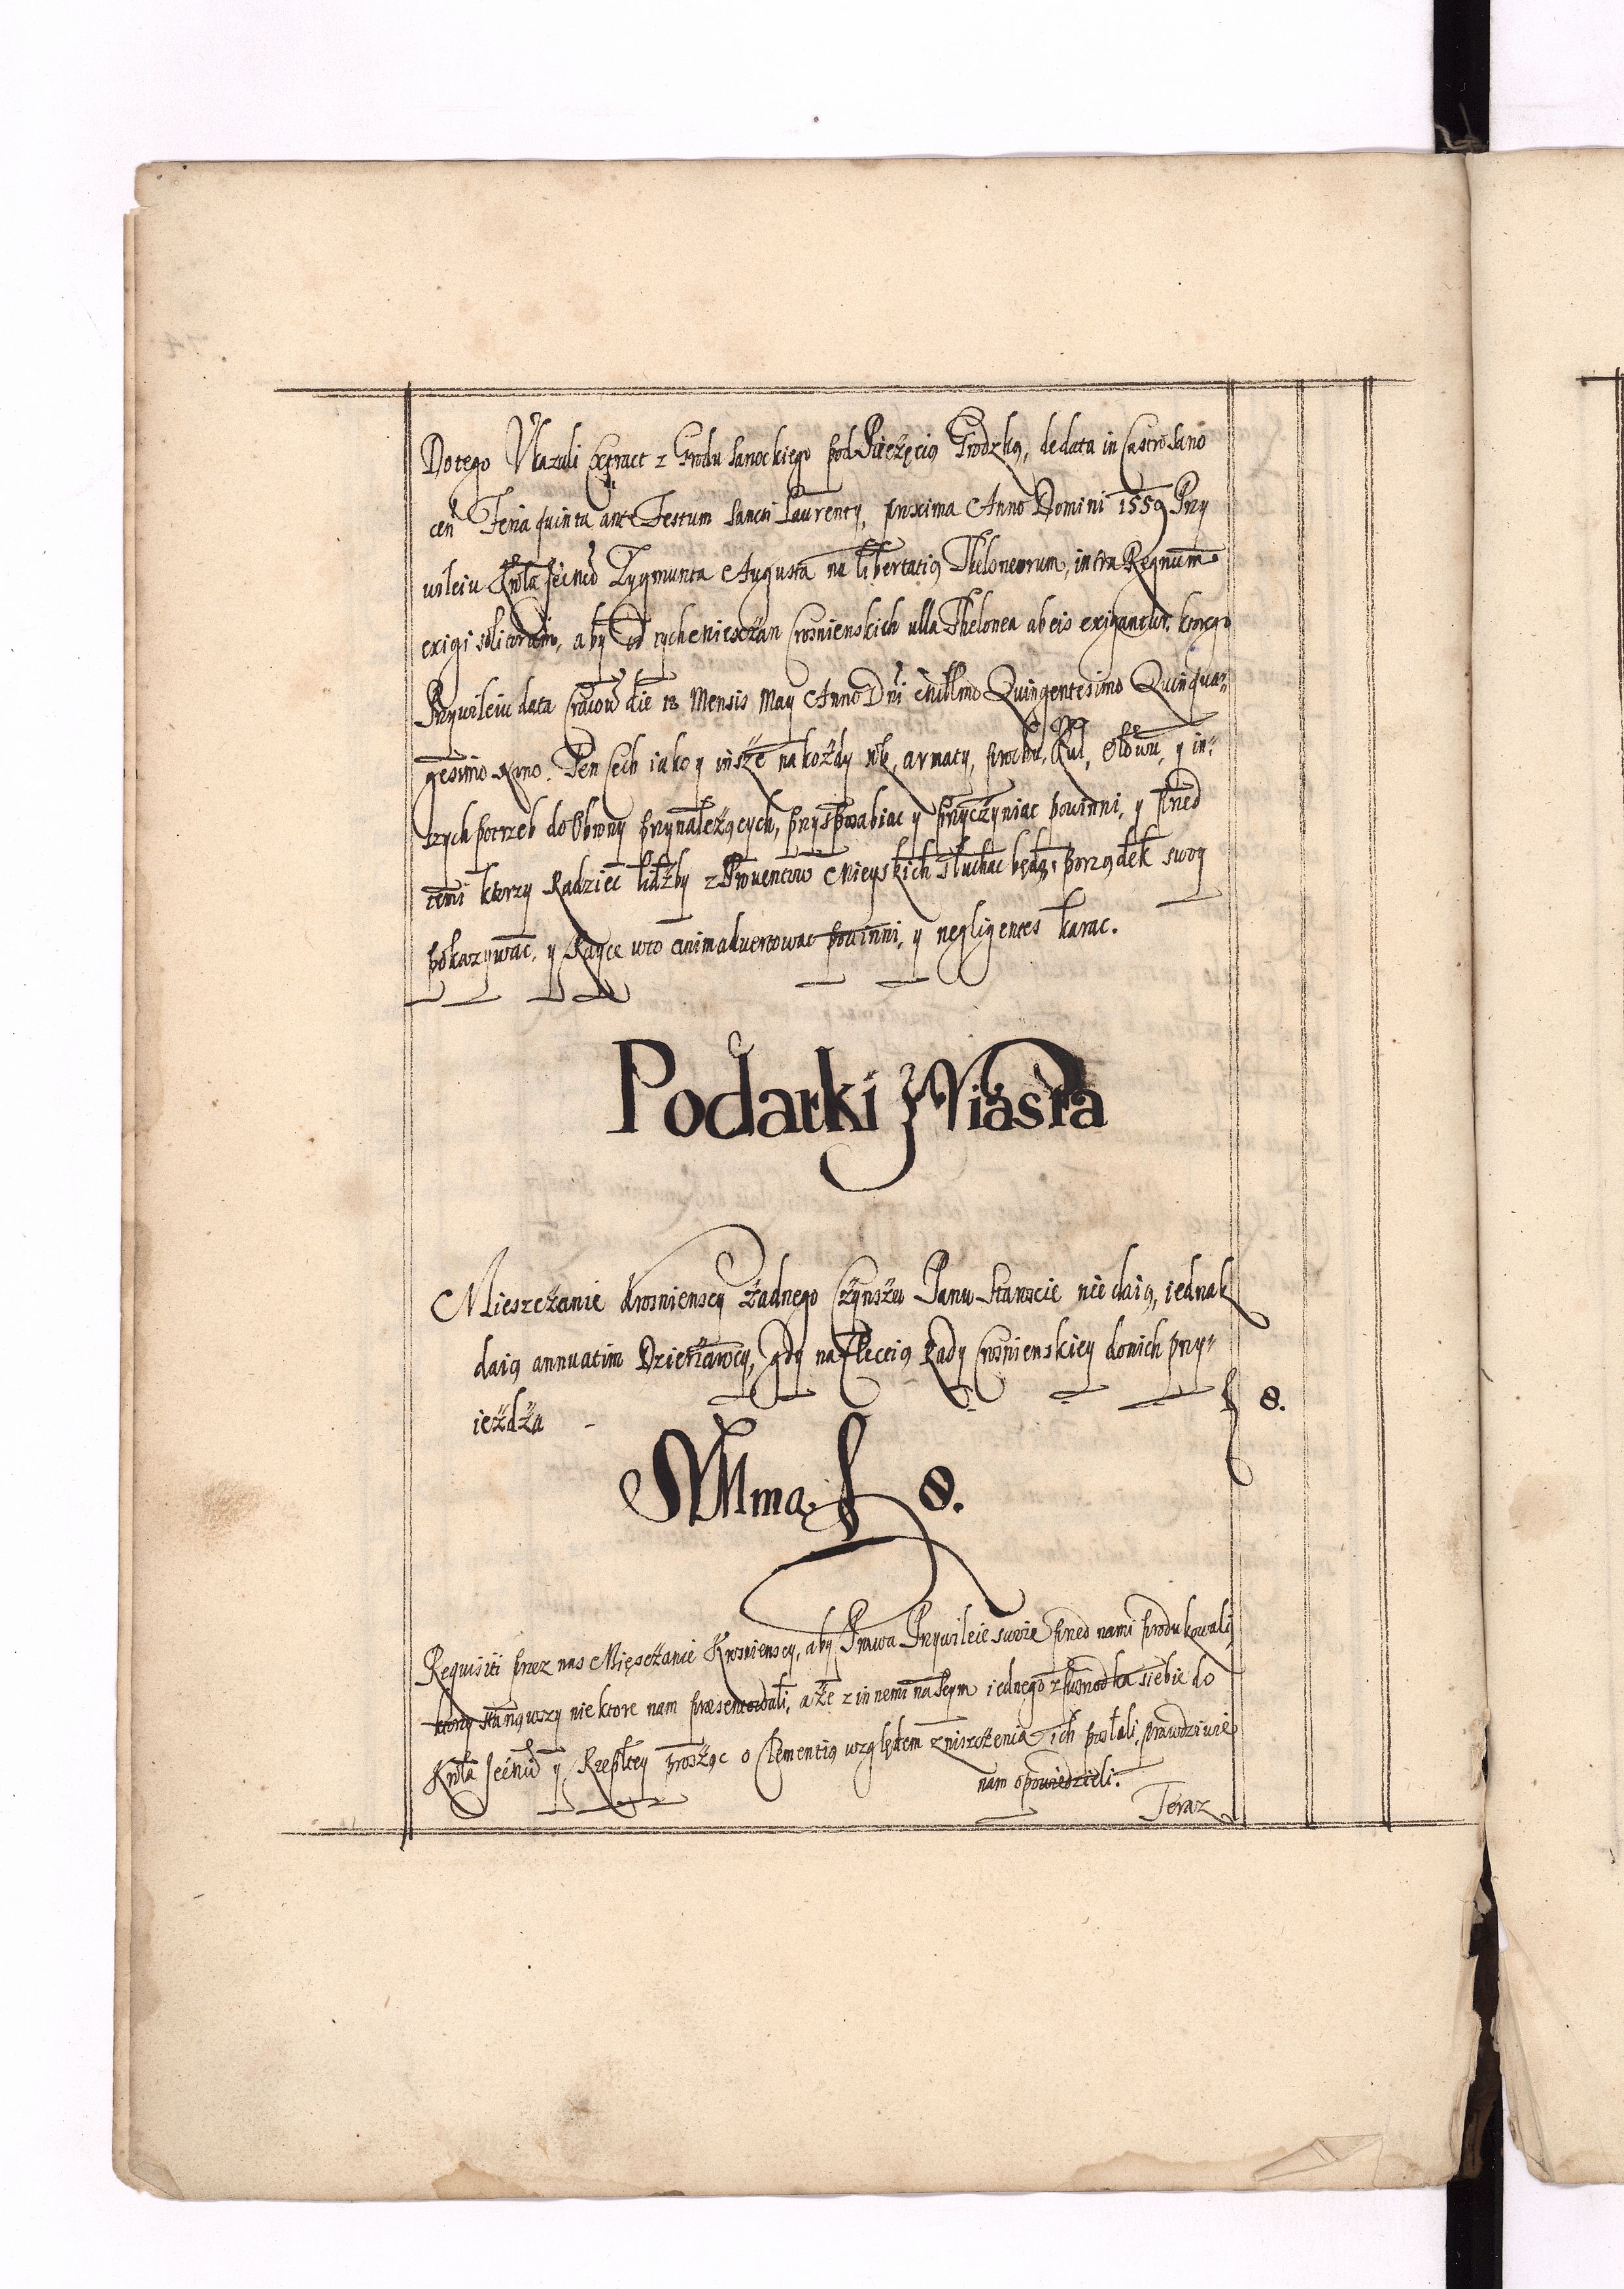 Do tego Ukazali Extract z Grodu Sanockiego pod Pieżęcią Grodzką, de data in Castro Sano
cen̄ Feria quinta ante Festum Sancti Laurenty, proxima Anno Domini 1559 Przy
uileiu Krola Jei͞nci Zygmunta Augusta na libertatią Theloneorum, intra Regnum
exigi solitorum, aby od tych mieszczan Crosnienskich ulla Thelonea ab eis exigantur. ktorego
Przywileiu data Cracou die 12 Mensis May Anno Dni Millmo Quingentesimo Quinqua-
gesimo Ten Cech iako y insze na kożdy rok, armaty, prochu, Kul, Ołowu, y in-
szych potrzeb do Obrony przynależących, przysposabiac y przyczyniac powinni, y przed
temi ktorzy Radziec lidzby z Prouentow Mieyskich słuchac będą, porządek swoy
pokazywac, y Rayce w to animadvertowac powinni, y negligentes karac.
Podarki z Miasta
Mieszczanie Krosnienscy żadnego Czynszu Panu Staroscie nie daią, iednak
daią annuatim Dzierżawcy, gdy na Elecią Rady Crosnienskiey do nich przy-
ieżdża - f 8.
Summa f 8.
Requisiti przez nas Mięsczanie Krosnienscy, aby Prawa Przywileie swoie przed nami produkowali,
ktorzy stanąwszy niektore nam praesentowali, a że z innemi na Seym iednego z posrodka siebie do
Krola Jei͞nci y Rzepltey prosząc o Clementią względem zniszczenia ich posłali, prawdziwie
nam opowiedzieli.
Teraz